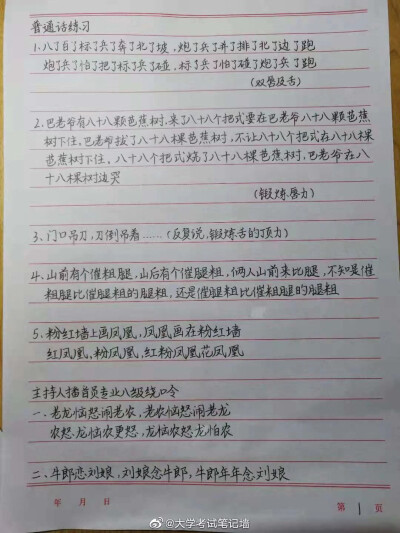 普通话练习
1、八了百了标了兵了奔了北了坡，炮了兵了并了排了北了边了跑
炮了兵了怕了把了标了兵了碰，标了兵了怕了碰了炮了兵了跑
(双唇及舌)
2、巴老爷有八十八颗芭蕉树，来了八十八个把式要在巴老爷八十八颗芭蕉
树下住，巴老爷拔了八十八棵芭蕉树，不让八十八个把式在八十八棵
芭蕉树下住，八十八个把式烧了八十八棵芭蕉树，巴老爷在八
十八棵树边哭
(锻炼唇力)
3、门口吊刀，刀倒吊着……(反复说，锻炼舌的顶力)
4、山前有个催粗腿，山后有个催腿粗，俩人山前来比腿，不知是催
粗腿比催腿粗的腿粗，还是催腿粗比催粗腿的腿粗
5、粉红墙上画凤凰，凤凰画在粉红墙
红凤凰，粉凤凰，红粉凤凰花凤凰
主持人播首员专业八级绕口令
一、老龙恼怒闹老农，老农恼怒闹老龙
农怒龙恼农更怒，龙恼农怒龙怕农
二、牛郎恋刘娘，刘娘念牛郎，牛郎年年念刘娘
年 月 日
第 1 页
@大学考试笔记墙